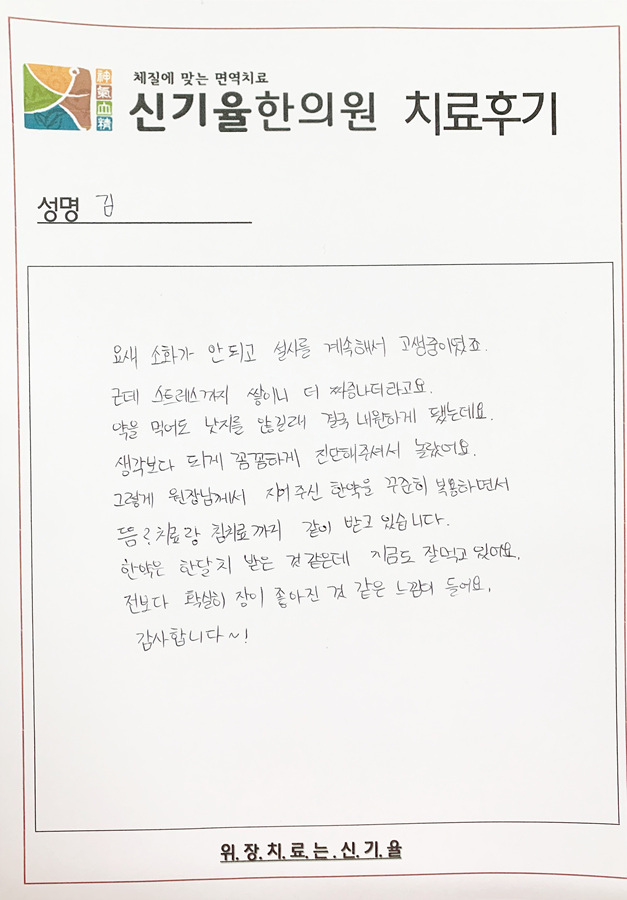 체질에 맞는 면역치료
神氣血精
신기율한의원 치료후기
성명 김
요새 소화가 안되고 설사를 계속해서 고생중이였죠.
근데 스트레스까지 쌓이니 더 짜증나더라고요.
약을 먹어도 낫지를 않길래 결국 내원하게 됐는데요.
생각보다 되게 꼼꼼하게 진단해주셔서 놀랐어요.
그렇게 원장님께서 지어주신 한약을 꾸준히 복용하면서
뜸? 치료랑 침치료까지 같이 받고 있습니다.
한약은 한달치 받은 것 같은데 지금도 잘먹고 있어요.
전보다 확실히 장이 좋아진 것 같은 느낌이 들어요.
감사합니다~!
위.장.치.료.는.신.기.율